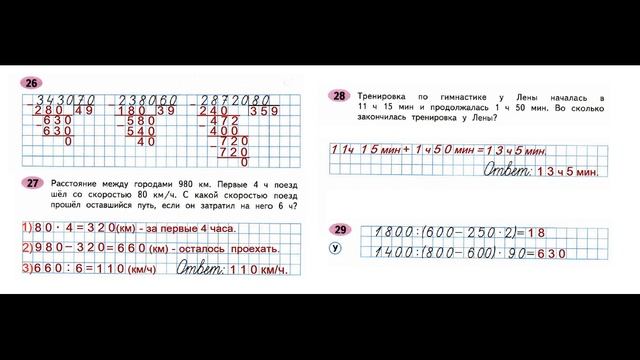 26
3430|70
280|49
630
630
0
2380|60
180|39
580
540
40
28720|80
240|359
472
400
720
720
0
27
Расстояние между городами 980 км. Первые 4 ч поезд
шёл со скоростью 80 км/ч. С какой скоростью поезд
прошёл оставшийся путь, если он затратил на него 6 ч?
1)80·4=320(км) - за первые 4 часа.
2)980-320=660(км) - осталось проехать.
3)660:6=110(км/ч) Ответ: 110км/ч.
28
Тренировка по гимнастике у Лены началась в
11 ч 15 мин и продолжалась 1 ч 50 мин. Во сколько
закончилась тренировка у Лены?
11ч 15мин+1ч50мин=13ч5мин.
Ответ: 13ч5мин.
29
1800:(600-250·2)=18
У
1400:(800-600)·90=630